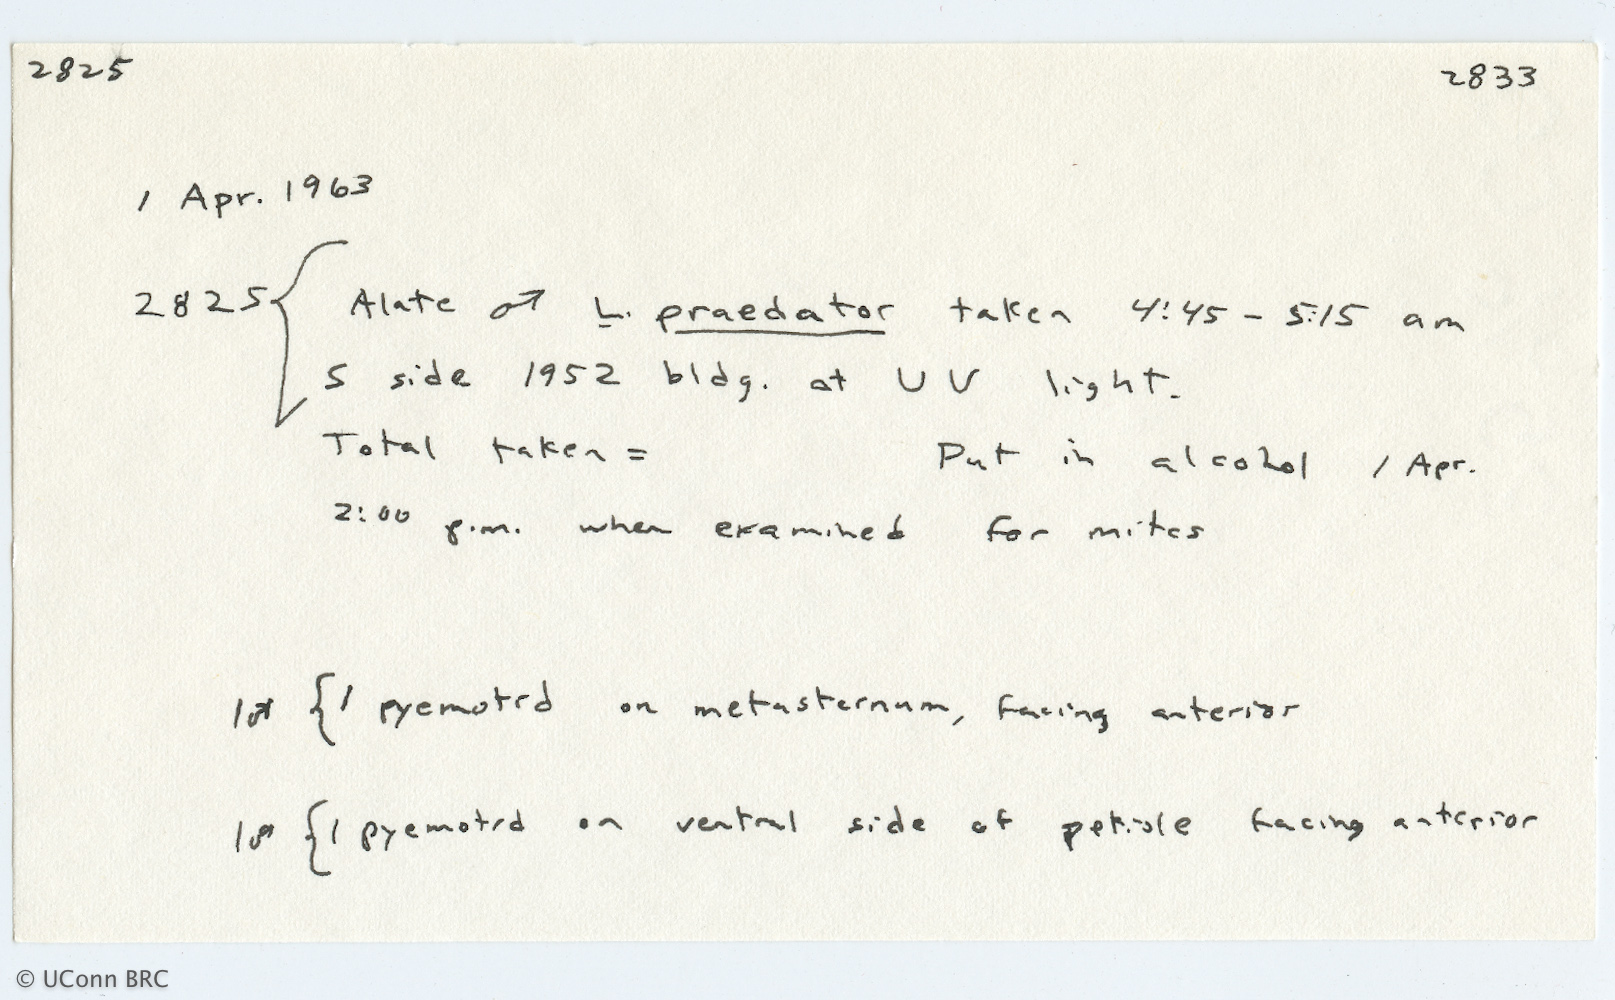 2825 2833
1 Apr. 1963
2825 { Alate ♂ L. praedator taken 4:45 - 5:15 am
S side 1952 bldg. at UV light.
Total taken = Put in alcohol 1 Apr.
2:00 p.m. when examined for mites
1♂ { 1 pyemotid on metasternum, facing anterior
1♂ { 1 pyemotid on ventral side of petiole facing anterior
© UConn BRC